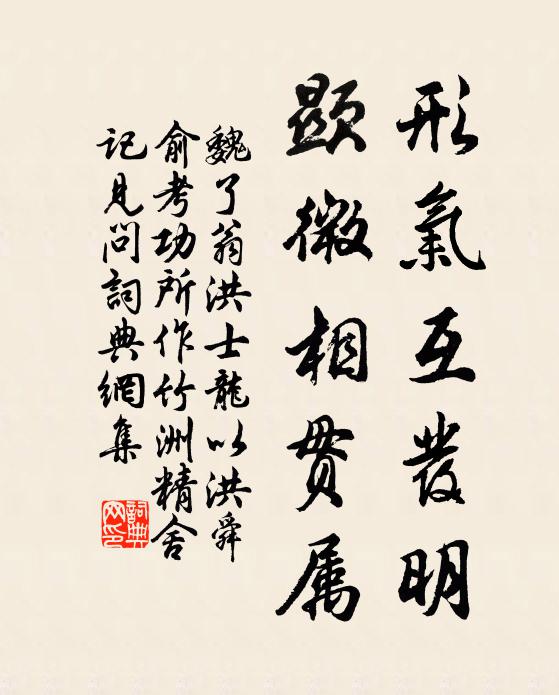 形氣互發明
顯微相貫属
魏了翁洪士龍以洪舜
俞考功所作竹洲精舍
記見问詞典網集
詞典网印